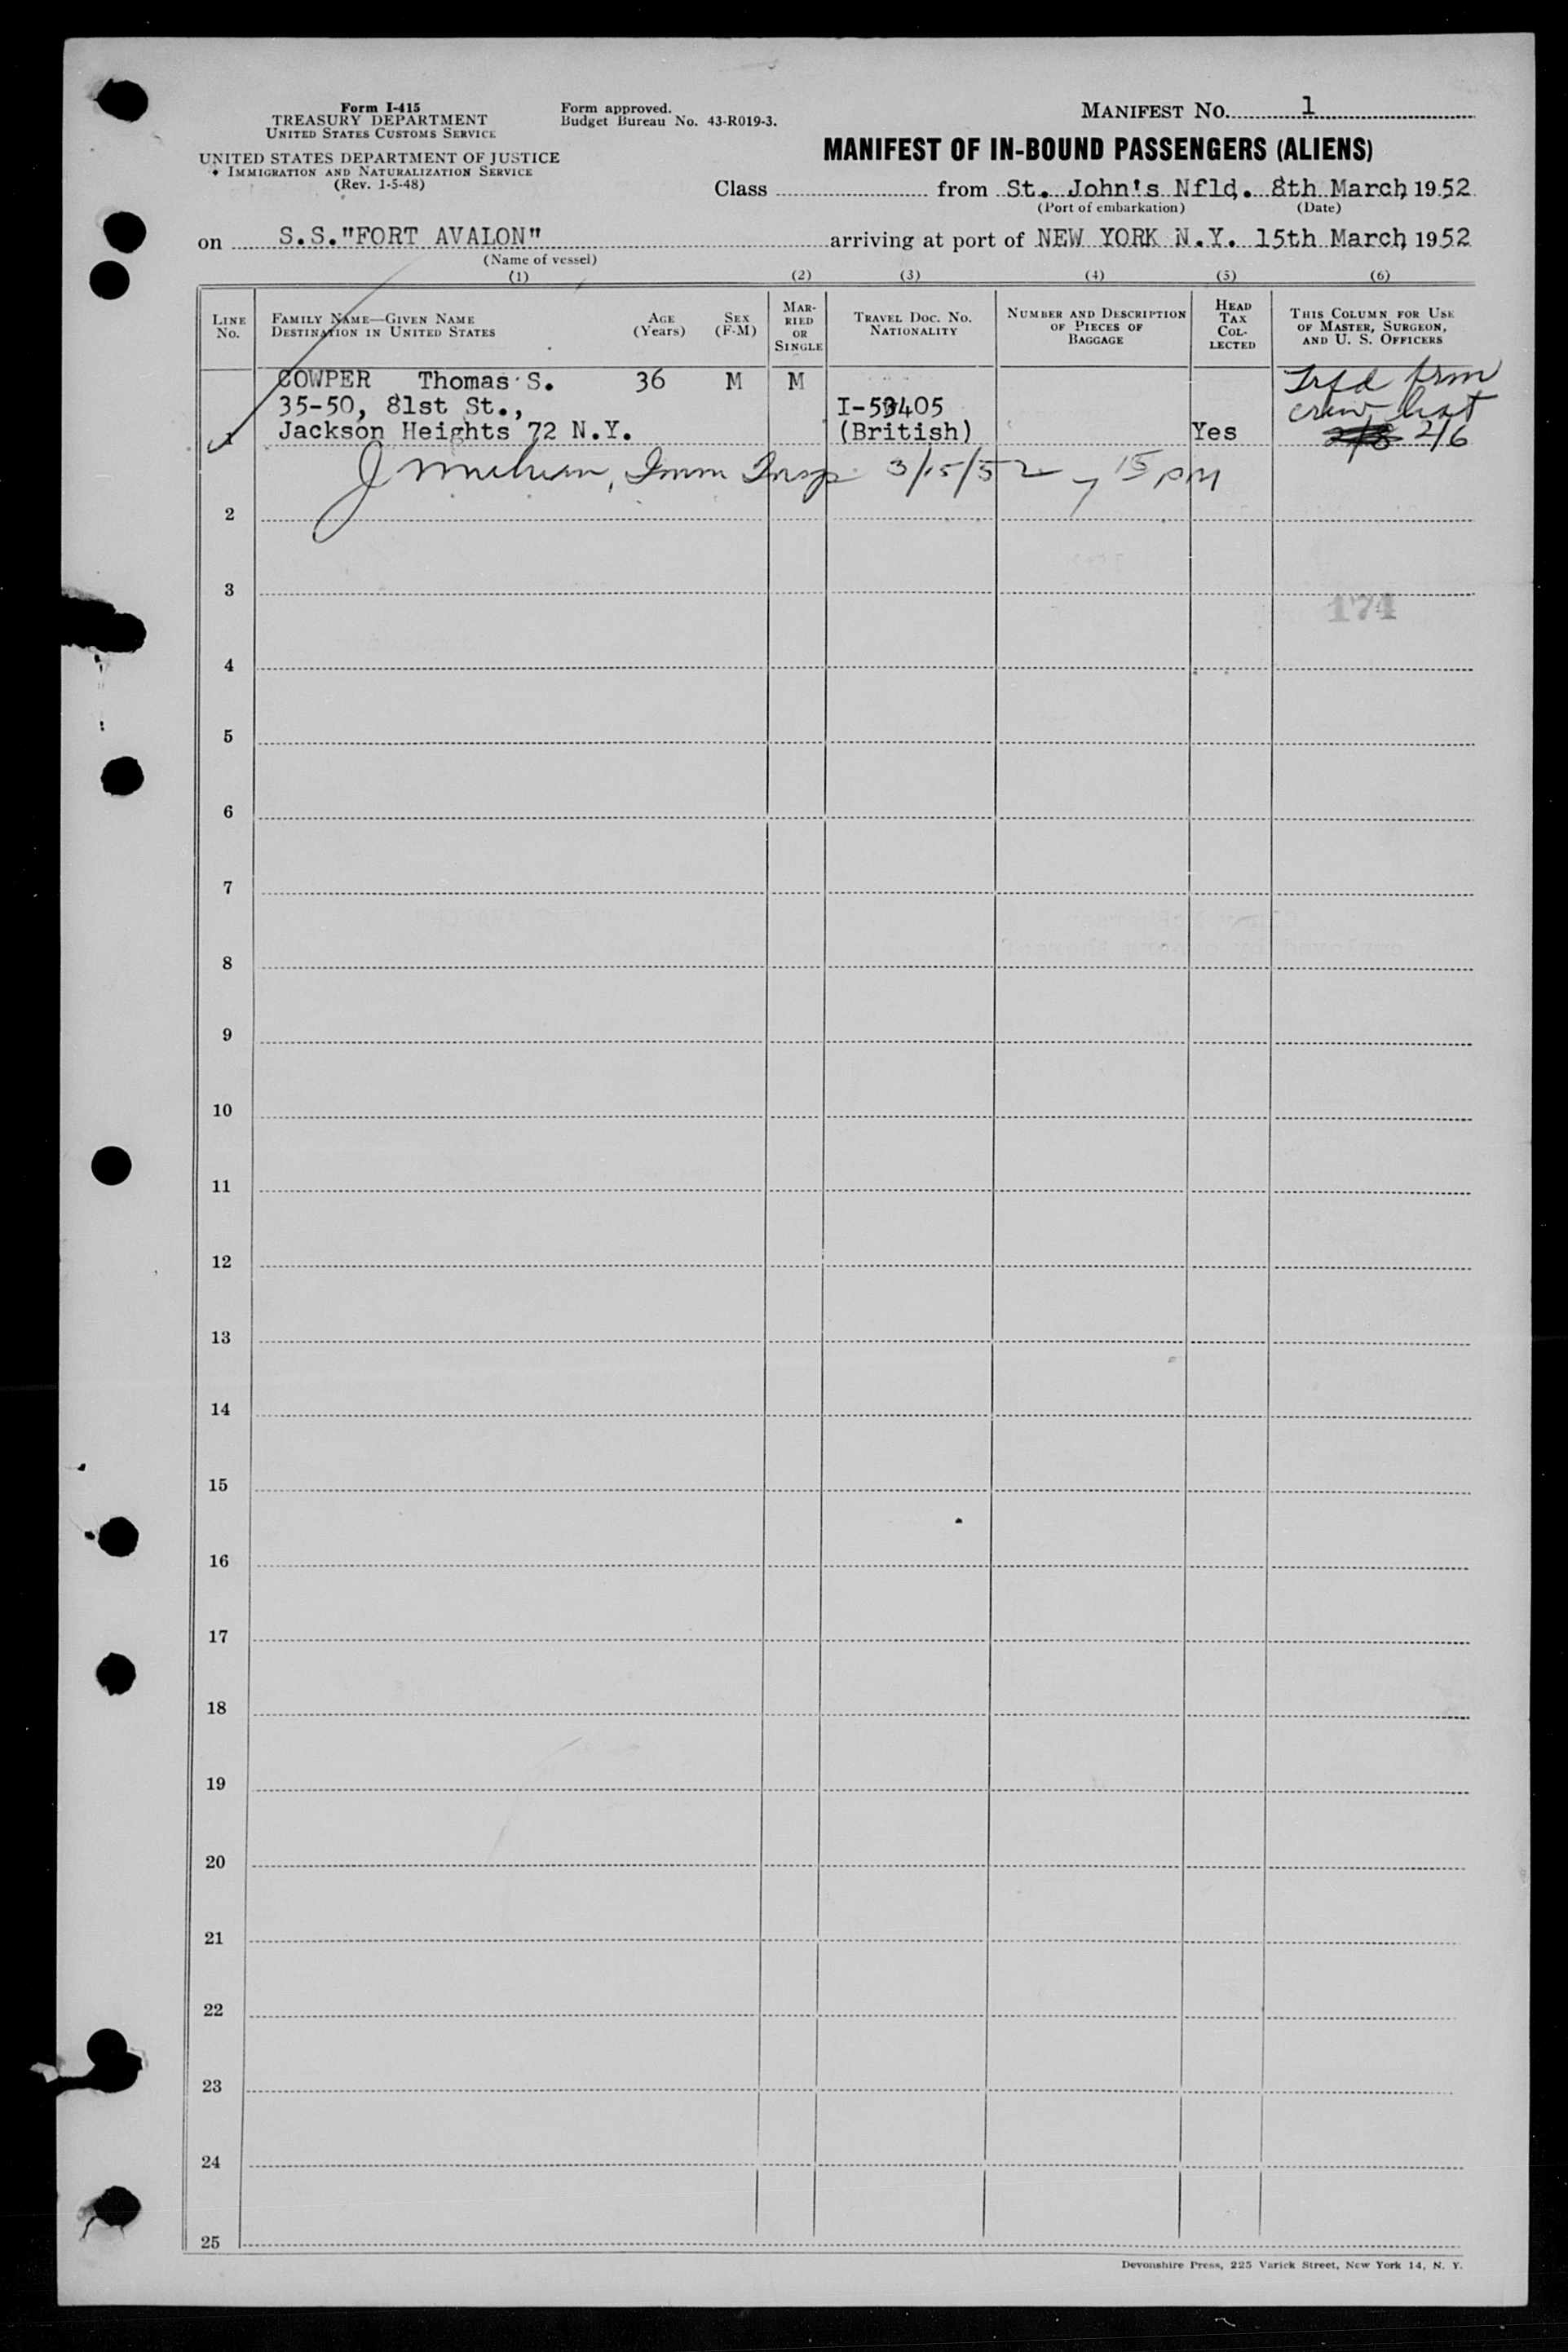 Form I-415
TREASURY DEPARTMENT
UNITED STATES CUSTOMS SERVICE
UNITED STATES DEPARTMENT OF JUSTICE
IMMIGRATION AND NATURALIZATION SERVICE
(Rev. 1-5-48)
Form approved.
Budget Bureau No. 43-R019-3.
MANIFEST NO. 1
MANIFEST OF IN-BOUND PASSENGERS (ALIENS)
Class from St. John's Nfld. 8th March, 1952
(Port of embarkation) (Date)
on S.S."FORT AVALON" arriving at port of NEW YORK N.Y. 15th March, 1952
(Name of vessel)
(1) (2) (3) (4) (5) (6)
LINE No.
FAMILY NAME—GIVEN NAME
DESTINATION IN UNITED STATES
AGE (Years)
SEX (F-M)
MARRIED OR SINGLE
TRAVEL DOC. NO. NATIONALITY
NUMBER AND DESCRIPTION OF PIECES OF BAGGAGE
HEAD TAX COLLECTED
THIS COLUMN FOR USE OF MASTER, SURGEON, AND U. S. OFFICERS
COWPER Thomas S. 36 M M Trfd frm
35-50, 81st St., crew list
1 Jackson Heights 72 N.Y. (British) Yes 2/6
Imm Insp. 3/15/52 7 15 PM
2
3
174
4
5
6
7
8
9
10
11
12
13
14
15
16
17
18
19
20
21
22
23
24
25
Devonshire Press, 225 Varick Street, New York 14, N. Y.